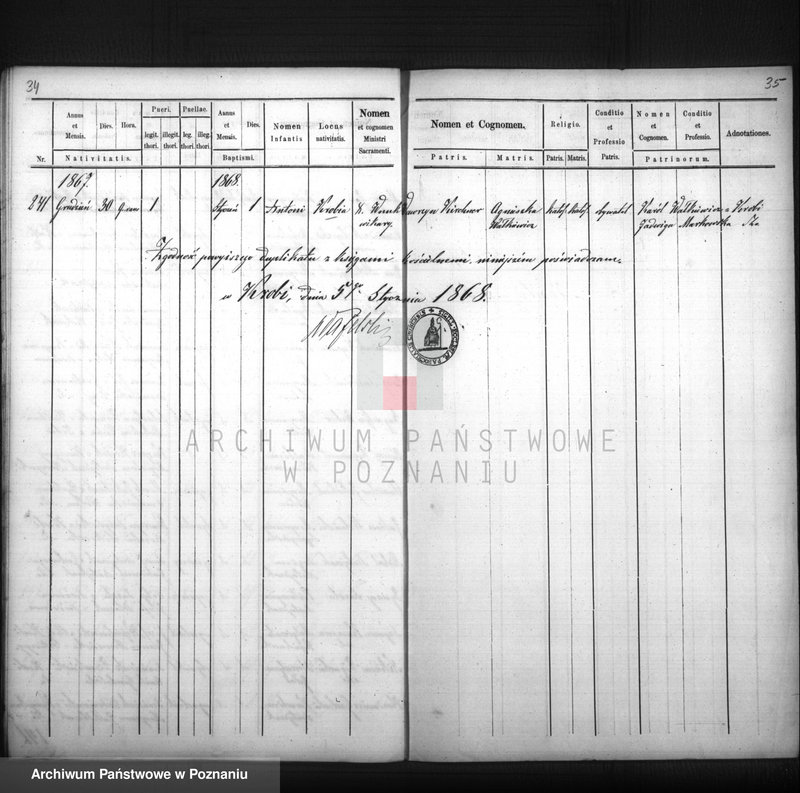 34
35
Nr.
Annus et Mensis.
Dies.
Hora.
Nativitatis.
Pueri.
legit. thori.
illegit. thori.
Puellae.
leg. thori.
illeg. thori.
Annus et Mensis.
Dies.
Baptismi.
Nomen Infantis
Locus nativitatis.
Nomen et cognomen Ministri Sacramenti.
Nomen et Cognomen.
Patris.
Matris.
Religio.
Patris.
Matris.
Conditio et Professio Patris.
Nomen et Cognomen.
Conditio et Professio.
Patrinorum.
Adnotationes.
1867. 1868.
241 Grudzień 30 1 Styczeń 1 Antoni Krobia X. wikary Wawrzyn Kirchner Agnieszka Walkiewicz Katol. Katol. Karól Walkiewicz z Krobi
Jadwiga Markowska
Zgodność powyższego duplikatu z księgami kościelnemi niniejszém poświadczam.
w Krobi, dnia 5go Stycznia 1868.
ARCHIWUM PAŃSTWOWE
W POZNANIU
Archiwum Państwowe w Poznaniu